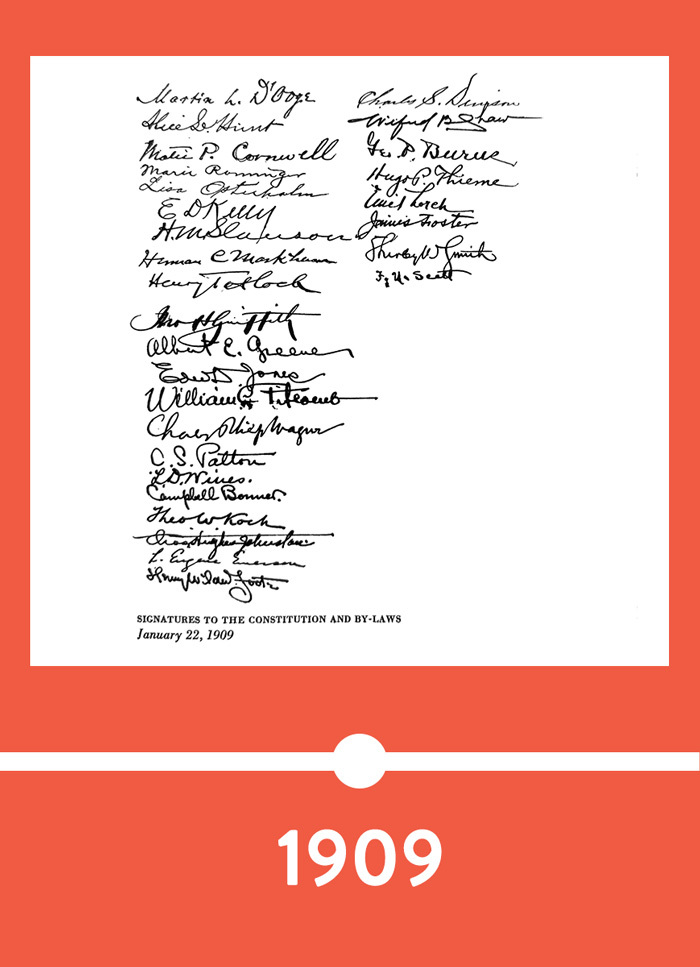 Martin L. D'Ooge
Alice L. Hunt
Matie P. Cornwell
Marie Rominger
Lisa Osterholm
E D Kelly
H. M. Slauson
Herman C Markham
Henry Tatlock
Jno H Griffith
Albert E. Greene
Edw D Jones
William Titcomb
Chas Philip Wagner
C. S. Patton
L. D. Wines.
Campbell Bonner.
Theo W. Koch
Chas Hughes Johnston
L. Eugene Emerson
Charles S. Denison
Wilfred B. Shaw
Geo P. Burns
Hugo P. Thieme
Emil Lorch
James Foster
Shirley W Smith
F. N. Scott
SIGNATURES TO THE CONSTITUTION AND BY-LAWS
January 22, 1909
1909